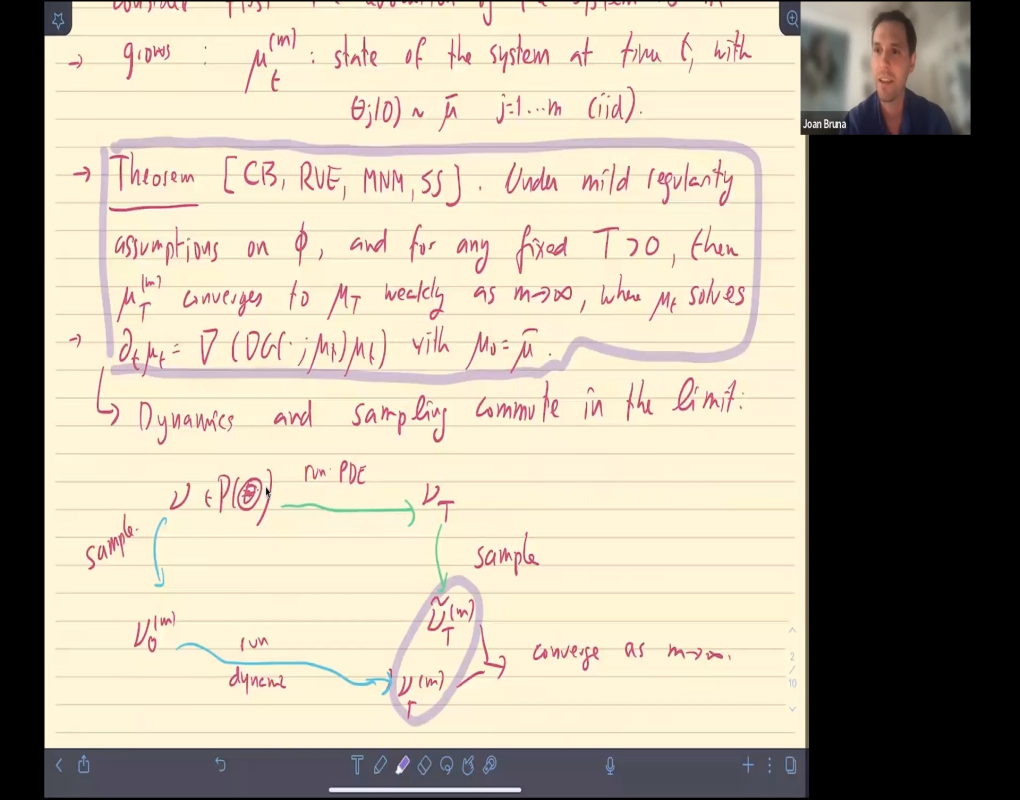 → grows : μ_t^(m) : state of the system at time t, with
θ_j(0) ~ μ̄ j=1...m (iid).
→ Theorem [CB, RVE, MNM, SS]. Under mild regularity
assumptions on ϕ, and for any fixed T>0, then
μ_T^(m) converges to μ_T weakly as m→∞, where μ_t solves
→ ∂_t μ_t = ∇(DG(·; μ_t) μ_t) with μ_0 = μ̄.
↳ Dynamics and sampling commute in the limit:
ν ∈ P(Θ) run PDE ν_T
sample. sample
ν̃_T^(m)
ν_0^(m) run converge as m→∞.
ν_T^(m)
Joan Bruna
2
/
10
T